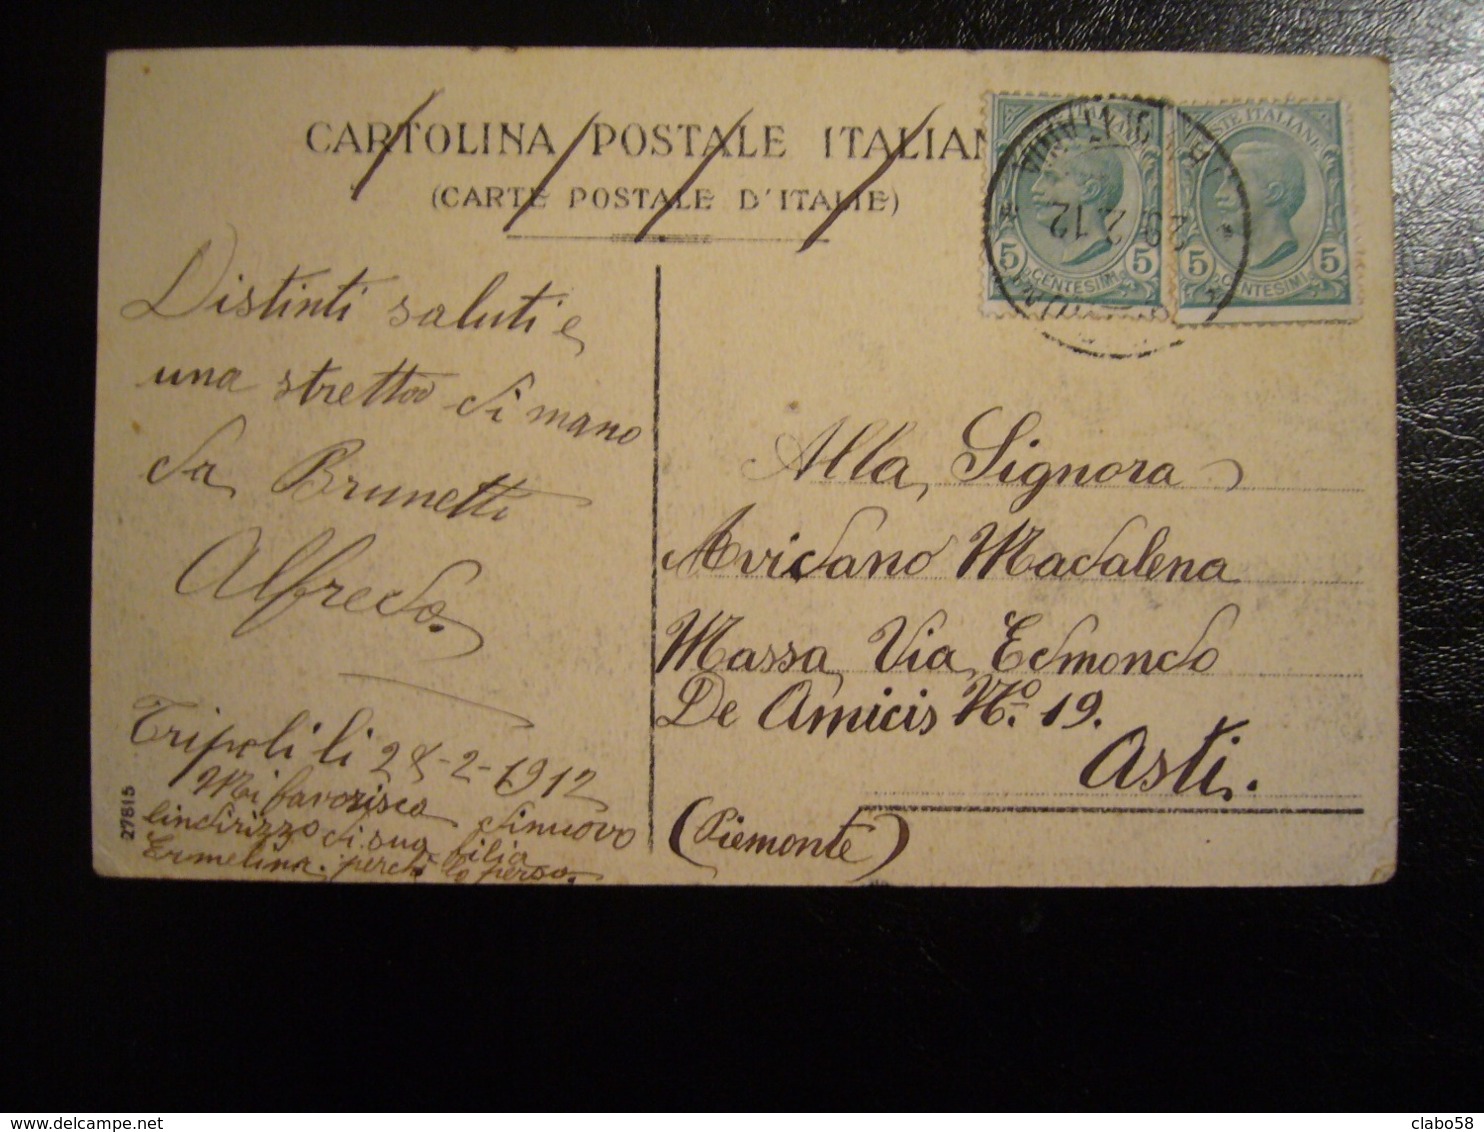 CARTOLINA POSTALE ITALIAN
(CARTE POSTALE D'ITALIE)
5 CENTESIMI 5
POSTE ITALIANE
5 CENTESIMI 5
29 2 12
Distinti saluti e
una stretta di mano
da Brunetti
Alfredo.
Tripoli li 28-2-1912
Mi favorisca dinuovo
lindirizzo di sua filia
Ermelina. perche lo perso.
27815
Alla Signora
Avidano Madalena
Massa Via Edmondo
De Amicis N.o 19.
Asti.
(Piemonte)
clabo58